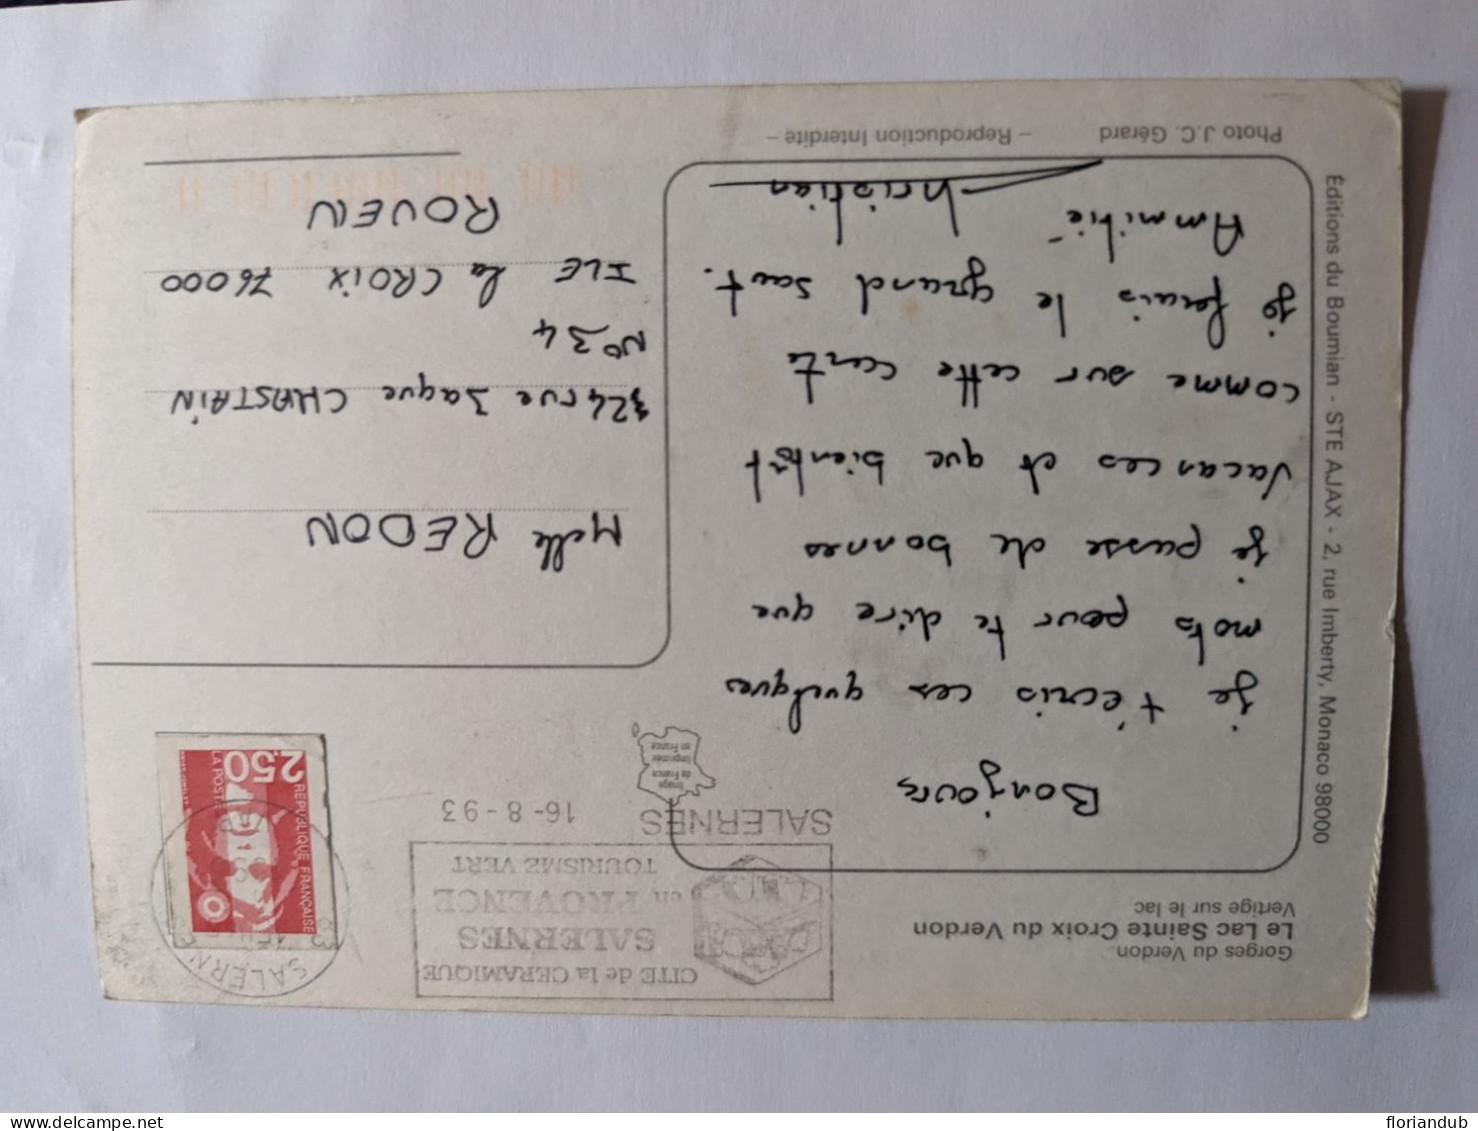 Gorges du Verdon.
Le Lac Sainte Croix du Verdon
Vertige sur le lac
CITE de la CERAMIQUE
SALERNES
en PROVENCE
TOURISME VERT
SALERNES 16-8-93
SALERN
REPUBLIQUE FRANÇAISE
2,50
LA POSTE
Image
de France
Imprimée
en France
Bonjour,
je t'écris ces quelques
mots pour te dire que
je passe de bonnes
vacances et que bientôt
comme sur cette carte
je ferais le grand saut.
Ammitié
Christian
Melle REDON
324 rue Jaque CHASTAIN
N° 34
ILE la CROIX 76000
ROUEN
Éditions du Boumian - STE AJAX - 2, rue Imberty, Monaco 98000
Photo J.C. Gérard – Reproduction Interdite –
floriandub
delcampe.net